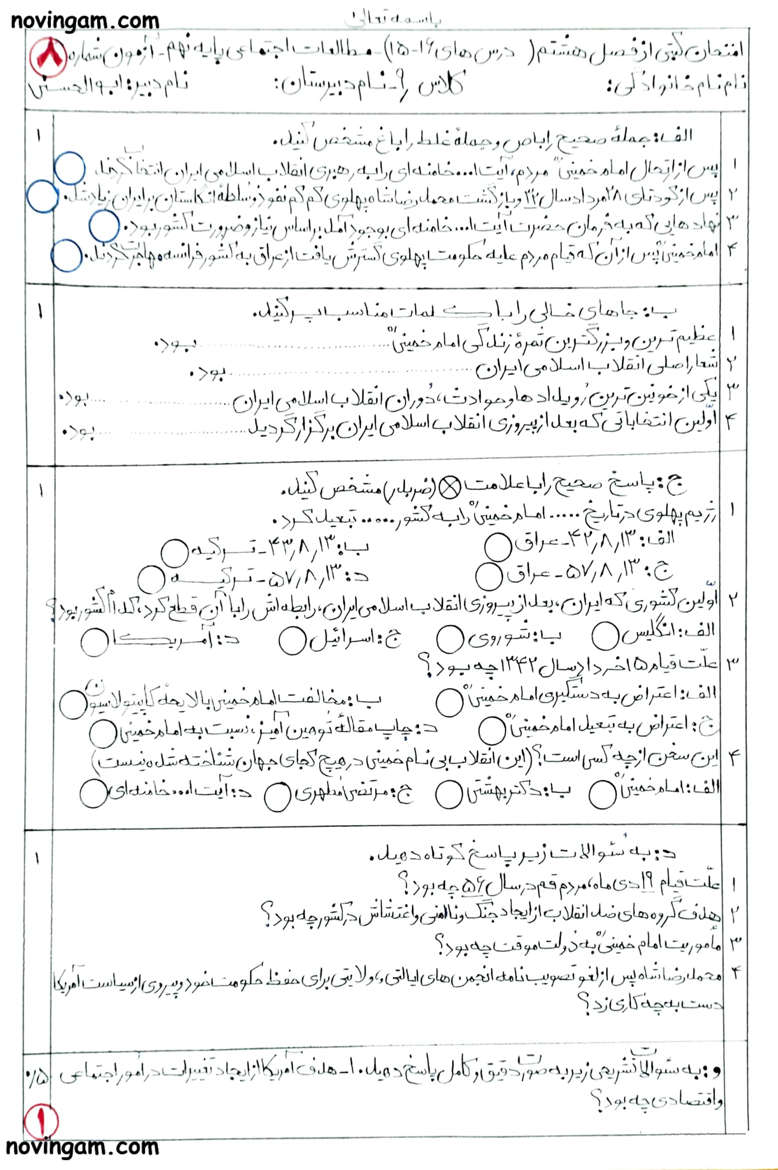 باسمه تعالی
novingam.com
امتحان کتبی از فصل هشتم ( درس های ۱۶-۱۵) - مطالعات اجتماعی پایه نهم - آزمون شماره ۸
نام نام خانوادگی: کلاس ۹ - نام دبیرستان: نام دبیر: ابوالحسنی
الف: جملهٔ صحیح را با ص و جملهٔ غلط را با غ مشخص کنید. ۱
۱ پس از ارتحال امام خمینی ؒ مردم، آیت ا... خامنه ای را به رهبری انقلاب اسلامی ایران انتخاب کردند.
۲ پس از کودتای ۲۸ مرداد سال ۳۲ و بازگشت محمدرضا شاه پهلوی کم کم نفوذ و سلطهٔ انگلستان بر ایران زیاد شد.
۳ نهادهایی که به فرمان حضرت آیت ا... خامنه ای بوجود آمد بر اساس نیاز و ضرورت کشور بود.
۴ امام خمینی ؒ پس از آن که قیام مردم علیه حکومت پهلوی گسترش یافت از عراق به کشور فرانسه مهاجرت کردند.
ب: جاهای خالی را با کلمات مناسب پر کنید. ۱
۱ عظیم ترین و بزرگترین ثمرهٔ زندگی امام خمینی ؒ .................... بود.
۲ شعار اصلی انقلاب اسلامی ایران .................... بود.
۳ یکی از خونین ترین رُویدادها و حوادث، دوران انقلاب اسلامی ایران .................... بود.
۴ اوّلین انتخاباتی که بعد از پیروزی انقلاب اسلامی ایران برگزار گردید .................... بود.
ج: پاسخ صحیح را با علامت ⊗ (ضربدر) مشخص کنید. ۱
۱ رژیم پهلوی در تاریخ ..... امام خمینی ؒ را به کشور ..... تبعید کرد.
الف: ۴۲٫۸٫۱۳ - عراق ب: ۴۳٫۸٫۱۳ - ترکیه
ج: ۵۷٫۸٫۱۳ - عراق د: ۵۷٫۸٫۱۳ - ترکیه
۲ اوّلین کشوری که ایران، بعد از پیروزی انقلاب اسلامی ایران، رابطه اش را با آن قطع کرد، کدام کشور بود؟
الف: انگلیس ب: شوروی ج: اسرائیل د: آمریکا
۳ علّت قیام ۱۵ خرداد سال ۱۳۴۲ چه بود؟
الف: اعتراض به دستگیری امام خمینی ؒ ب: مخالفت امام خمینی با لایحهٔ کاپیتولاسیون
ج: اعتراض به تبعید امام خمینی ؒ د: چاپ مقالهٔ توهین آمیز، نسبت به امام خمینی
۴ این سخن از چه کسی است؟ (این انقلاب بی نام خمینی در هیچ کجای جهان شناخته شده نیست)
الف: امام خمینی ؒ ب: دکتر بهشتی ج: مرتضی مطهری د: آیت ا... خامنه ای
د: به سُوالات زیر پاسخ کوتاه دهید. ۱
۱ علّت قیام ۱۹ دی ماه، مردم قم در سال ۵۶ چه بود؟
۲ هدف گروه های ضد انقلاب از ایجاد جنگ و ناامنی و اغتشاش در کشور چه بود؟
۳ مأموریت امام خمینی ؒ به دولت موقت چه بود؟
۴ محمدرضا شاه پس از لغو تصویب نامه انجمن های ایالتی و ولایتی برای حفظ حکومت خود و پیروی از سیاست آمریکا
دست به چه کاری زد؟
و: به سُوالات تشریعی زیر به صورت دقیق و کامل پاسخ دهید. ۱- هدف آمریکا از ایجاد تغییرات در امور اجتماعی ۰/۵
و اقتصادی چه بود؟
۱
novingam.com